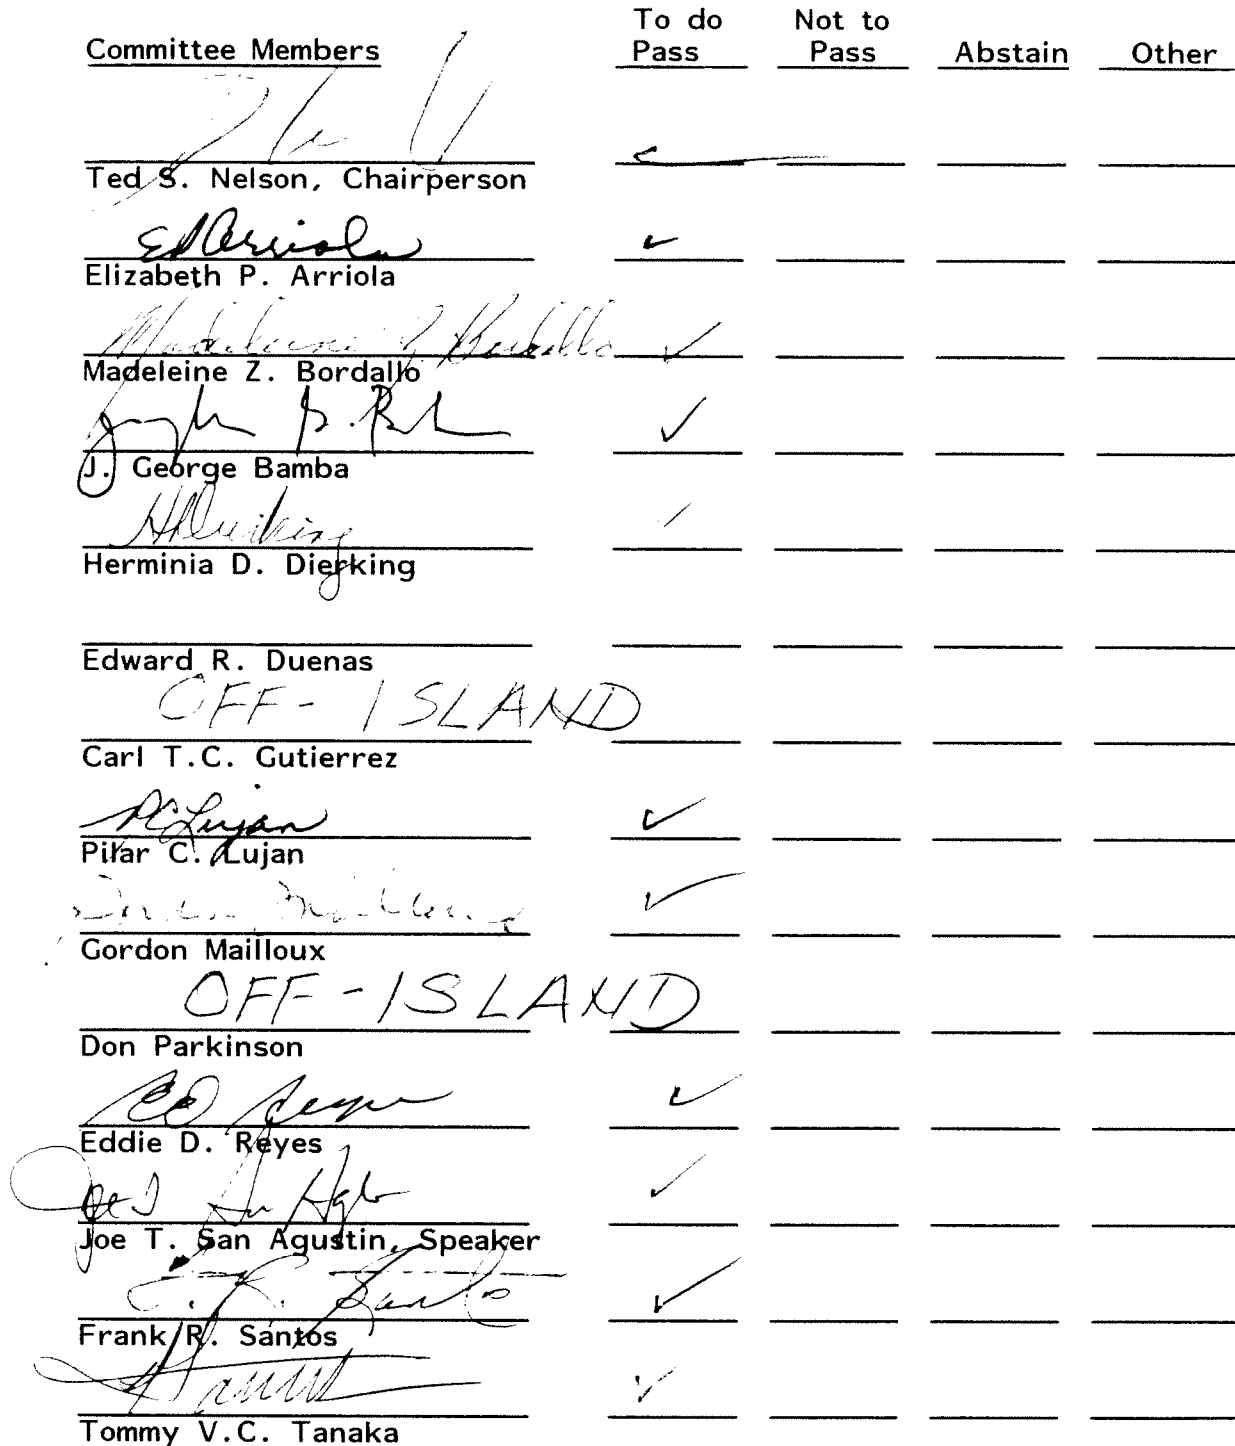 To do Not to
Committee Members Pass Pass Abstain Other
✓
Ted S. Nelson, Chairperson
EPArriola ✓
Elizabeth P. Arriola
Madeleine Z Bordallo ✓
Madeleine Z. Bordallo
✓
J. George Bamba
HDierking ✓
Herminia D. Dierking
Edward R. Duenas
OFF-ISLAND
Carl T.C. Gutierrez
PCLujan ✓
Pilar C. Lujan
Gordon Mailloux ✓
Gordon Mailloux
OFF-ISLAND
Don Parkinson
ED Reyes ✓
Eddie D. Reyes
Joe T San Agustin ✓
Joe T. San Agustin, Speaker
F. R. Santos ✓
Frank R. Santos
✓
Tommy V.C. Tanaka